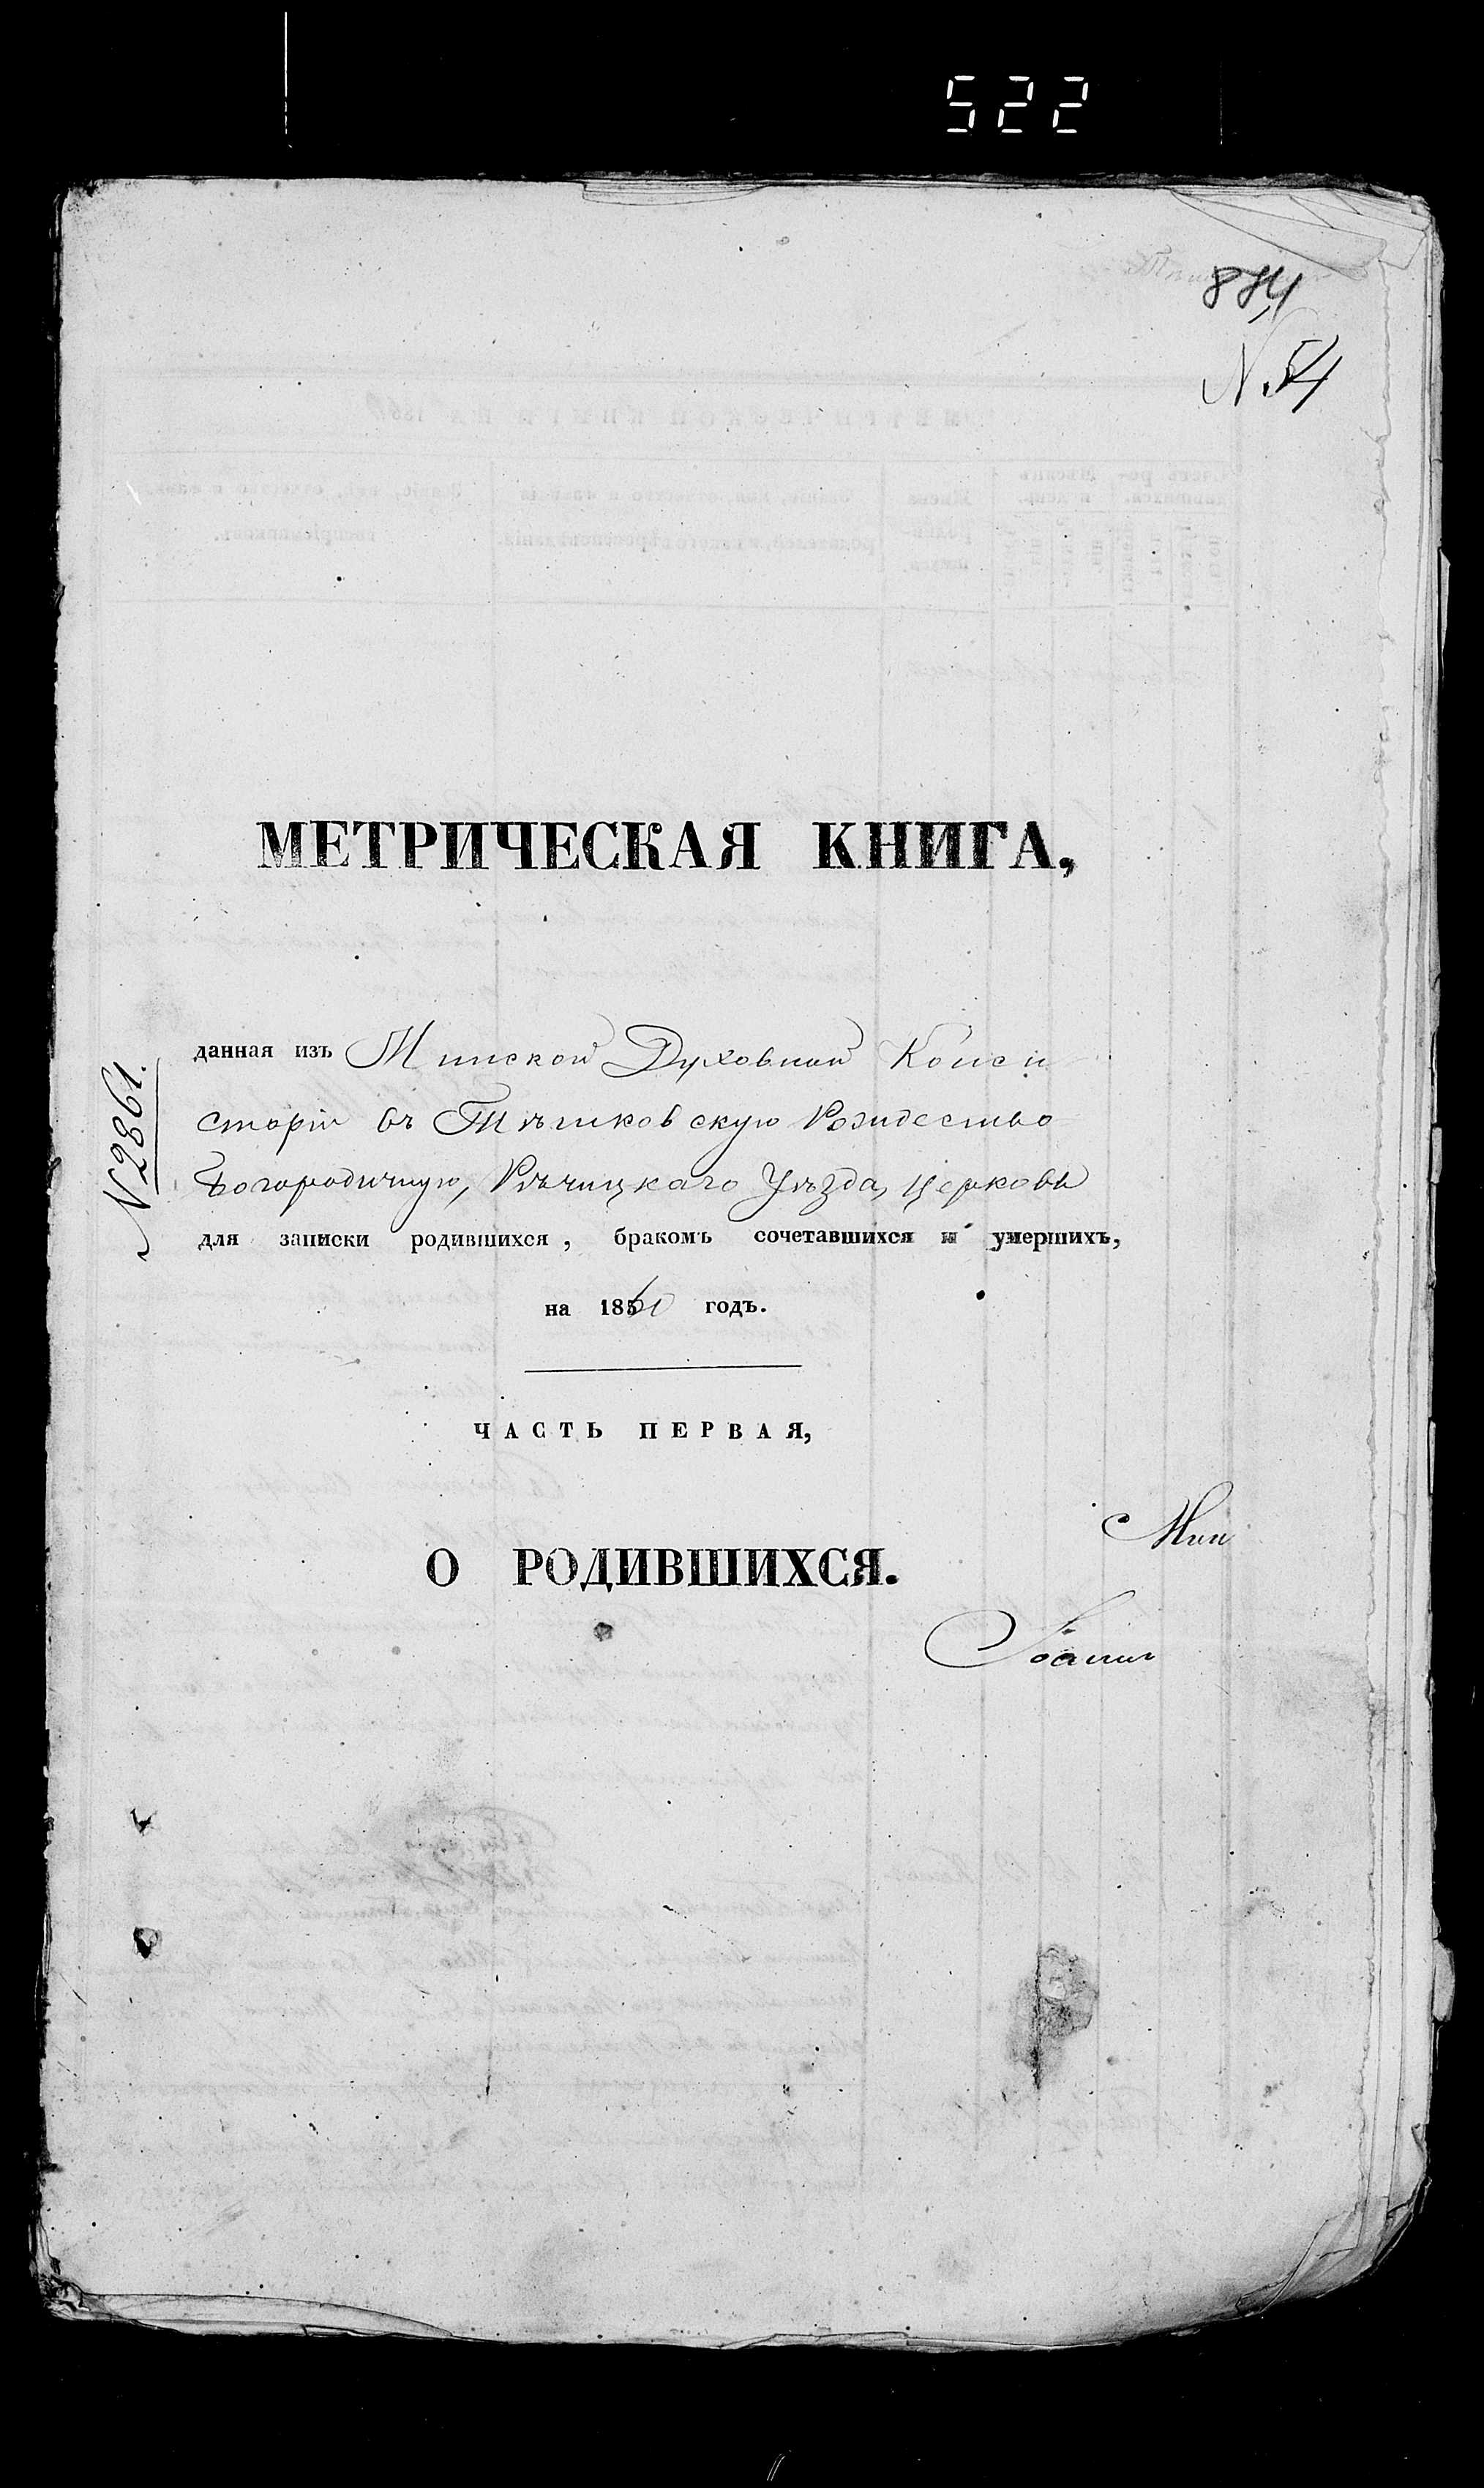 522
884
N 54
МЕТРИЧЕСКАЯ КНИГА,
N 2861.
данная изъ Минской Духовной Конси
сторіи въ Тѣшковскую Рождество
Богородичную, Рѣчицкаго Уѣзда, церковь
для записки родившихся, бракомъ сочетавшихся и умершихъ,
на 1860 годъ.
ЧАСТЬ ПЕРВАЯ,
О РОДИВШИХСЯ.
Мин
Іоаннъ